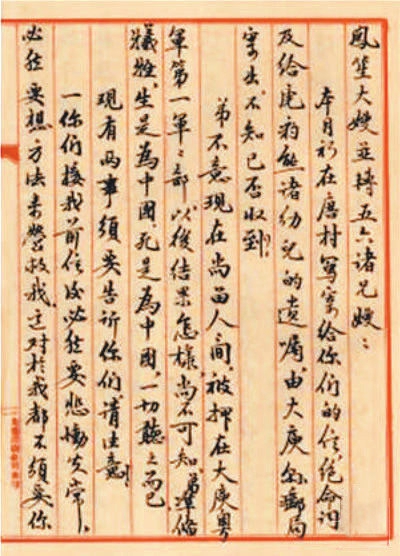 鳳笙大嫂並轉五六諸兄嫂：
本月初在唐村寫寄給你們的信，絕命詞
及給虎豹熊諸幼兒的遺囑，由大庾縣郵局
寄出，不知已否收到？
弟不意現在尚留人間，被押在大庾粵
軍第一軍々部，以後結果怎樣，尚不可知，弟準備
犧牲，生是為中國，死是為中國，一切聽之而已
現有兩事須要告訴你們請注意！
一你們接我前信後必然要悲慟失常，
必然要想方法來營救我，這對於我都不須要你